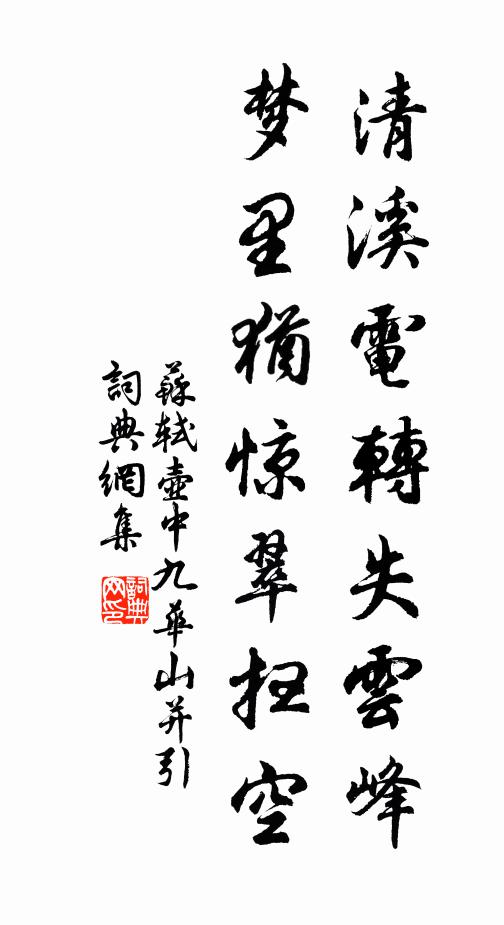 清溪電轉失雲峰
梦里猶惊翠扫空
蘇轼壺中九華山并引
詞典網集
詞典網印